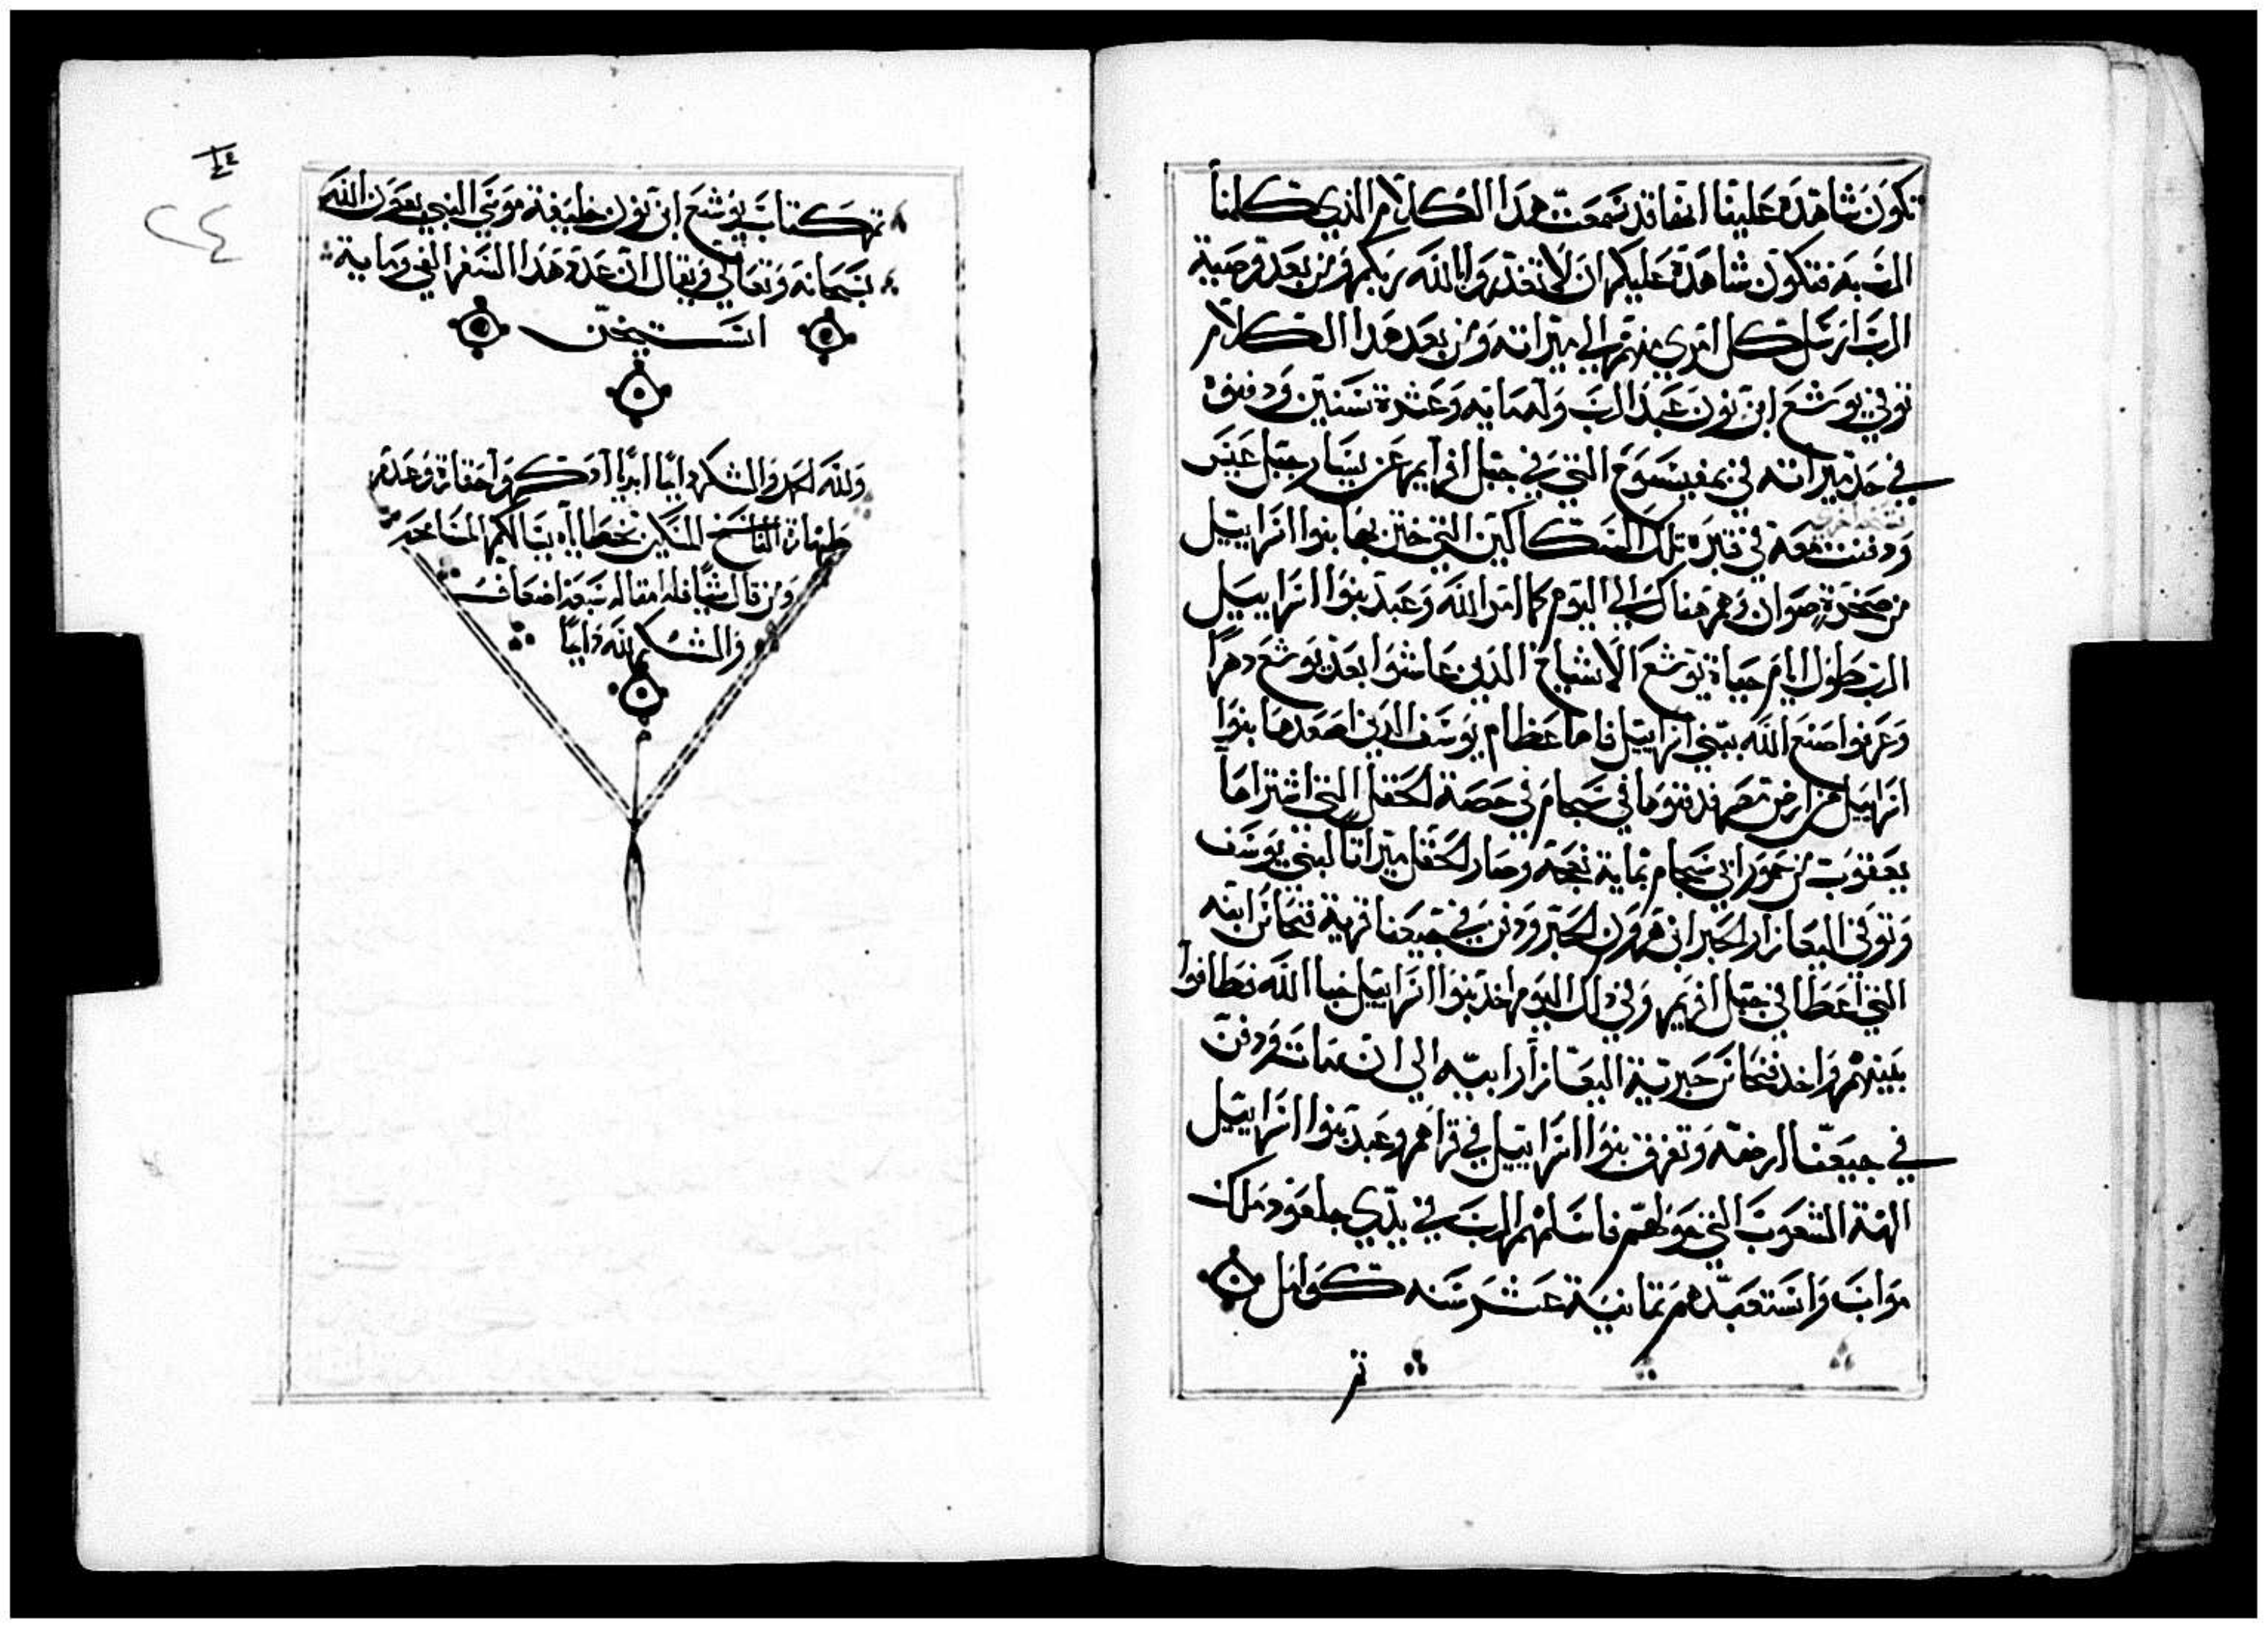 تكون شاهدة علينا انها قد سمعت هدا الكلام الذي كلمنا
الرب به فتكون شاهدة عليكم ان لا تغدروا بالله ربكم ومن بعد وصية
الرب ارسل كل امري منهم الي ميراته ومن بعد هدا الكلام
توفي يوشع ابن نون عبد الرب وله مايه وعشرة سنين ودفنوه
في حد ميراته في التي في جبل افرايم عن يسار جبل
ودفنت معه في قبره تلك السكاكين التي ختن بها بنوا اسراييل
من صخرة صوان وهم هناك الي اليوم كما امر الله وعبد بنوا اسراييل
الرب طول ايام حياة يوشع الاشياخ الدين عاشوا بعد يوشع دهرا
وعرفوا صنع الله ببني اسراييل فاما عظام يوسف الدي اصعدها بنوا
اسراييل من ارض مصر فدفنوها في سجام في حصة الحقل التي اشتراها
يعقوب من عمور ابي سجام بماية نعجة وصار الحقل ميراتا لبني يوسف
وتوفي اليعازار الحبر ابن هرون الحبر ودفن في جبعنا قرية فنحاس ابنه
التي اعطا في جبل افريم وفي دلك اليوم اخد بنوا اسراييل خبا الله فطافوا
بينهم واخد فنحاس حبرية اليعازار ابيه الي ان مات ودفن
في جبعنا ارضه وتفرق بنوا اسراييل في قراهم وعبد بنوا اسراييل
الهة الشعوب التي حولهم فاسلمهم الرب في يدي جلعود ملك
مواب واستعبدهم تمانية عشر سنه كوامل
تم
٢٤
تم كتاب يوشع ابن نون خليفة موسي النبي بعون الله
سبحانه وتعالي ويقال ان عدة هدا السفر الفي ومايه
استيخن
ولله الحمد والشكر دايما ابديا
طهارة الناسخ المسكين بخطاياه يسالكم المسامحه
ومن قال شيا فله امقاله سبعة اضعاف
والشكر لله دايما